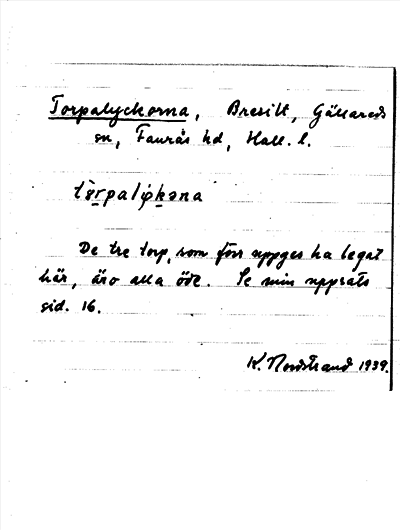 Torpalyckorna, Bresilt, Gällareds
sn, Faurås hd, Hall. l.
De tre torp, som förr uppges ha legat
här, äro alla öde. Se min uppsats
sid. 16.
K. Nordstrand 1939.